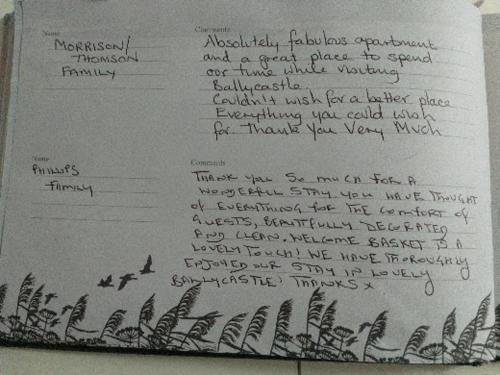 Name
MORRISON/
THOMSON
FAMILY
Comments
Absolutely fabulous apartment
and a great place to spend
our time while visiting
Ballycastle.
Couldn't wish for a better place
Everything you could wish
for. Thank You Very Much
Name
PHILLIPS
FAMILY
Comments
THANK YOU SO MUCH FOR A
WONDERFULL STAY YOU HAVE THOUGHT
OF EVERYTHING FOR THE COMFORT OF
GUESTS, BEAUTIFULLY DECORATED
AND CLEAN. WELCOME BASKET IS A
LOVELY TOUCH! WE HAVE THOROUGHLY
ENJOYED OUR STAY IN LOVELY
BALLYCASTLE! THANKS x